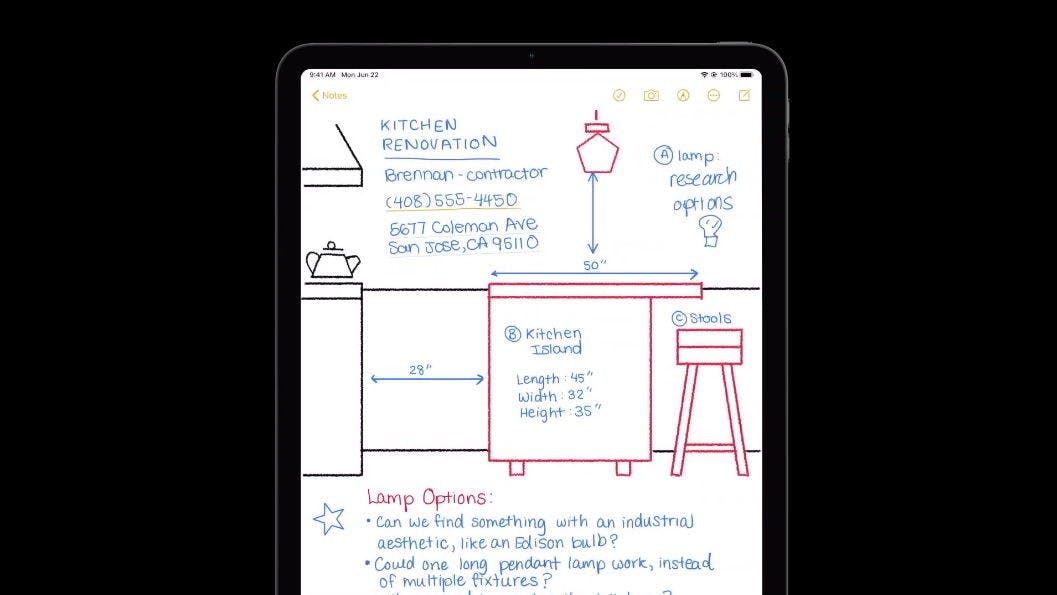 9:41 AM Mon Jun 22
100%
Notes
KITCHEN
RENOVATION
Brennan - contractor
(408) 555-4450
5677 Coleman Ave
San Jose, CA 95110
A lamp:
research
options
50"
B Kitchen
Island
Length: 45"
Width: 32"
Height: 35"
28"
C Stools
Lamp Options:
• Can we find something with an industrial
aesthetic, like an Edison bulb?
• Could one long pendant lamp work, instead
of multiple fixtures?